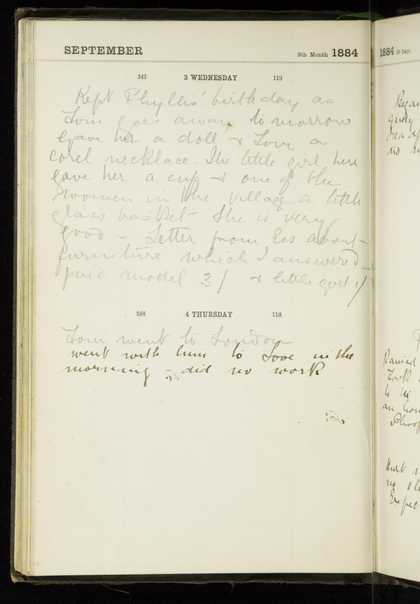 SEPTEMBER 9th Month 1884
247 3 WEDNESDAY 119
Kept Phyllis' birthday as
Tom goes away to morrow
Gave her a doll & Tom a
coral necklace. The little girl here
gave her a cup & one of the
women in the village a little
glass basket - She is very
good - Letter from Les about
furniture which I answered
paid model 3/ & little girl 1/
248 4 THURSDAY 118
Tom went to London
went with him to Looe in the
morning - did no work
1884